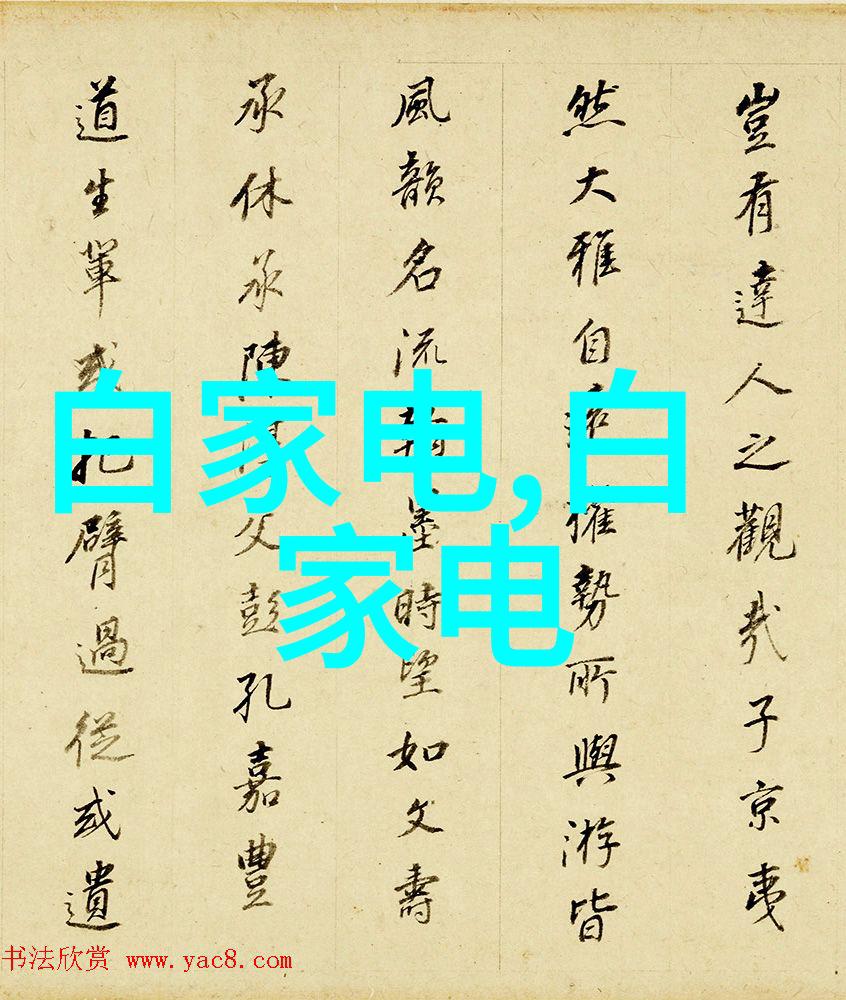 豈有達人之觀哉子京夷
然大雅自勢所與游皆
風韻名流翰墨時望如文壽
承休承陳父彭孔嘉豐
道生軰或把臂過從或遺
白家电,白
家电
书法欣赏 www.yac8.com